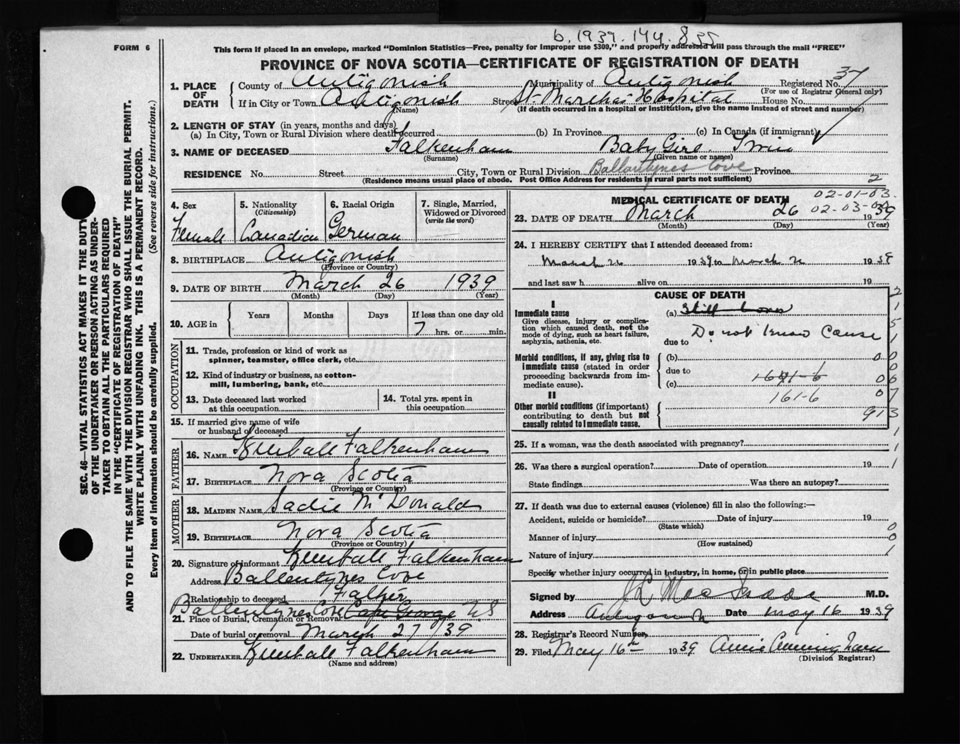 b. 1939. 144. 835
FORM 6
This form if placed in an envelope, marked "Dominion Statistics—Free, penalty for improper use $300," and properly addressed will pass through the mail "FREE"
PROVINCE OF NOVA SCOTIA—CERTIFICATE OF REGISTRATION OF DEATH
1. PLACE OF DEATH
County of Antigonish Municipality of Antigonish Registered No. 37
(For use of Registrar General only)
If in City or Town Antigonish Street St. Martha's Hospital House No.
(Name) (If death occurred in a hospital or institution, give the name instead of street and number)
2. LENGTH OF STAY (in years, months and days)
(a) In City, Town or Rural Division where death occurred (b) In Province (c) In Canada (if immigrant)
3. NAME OF DECEASED Falkenham Baby Girl. Twin
(Surname) (Given name or names)
RESIDENCE No. Street City, Town or Rural Division Ballentynes Cove Province
(Residence means usual place of abode. Post Office Address for residents of rural parts not sufficient) 2
4. Sex Female
5. Nationality (Citizenship) Canadian
6. Racial Origin German
7. Single, Married, Widowed or Divorced (write the word)
8. BIRTHPLACE Antigonish
(Province or Country)
9. DATE OF BIRTH March 26 1939
(Month) (Day) (Year)
10. AGE in Years Months Days If less than one day old
7 hrs. or min.
OCCUPATION
11. Trade, profession or kind of work as spinner, teamster, office clerk, etc.
12. Kind of industry or business, as cotton-mill, lumbering, bank, etc.
13. Date deceased last worked at this occupation
14. Total yrs. spent in this occupation
15. If married give name of wife or husband of deceased
FATHER
16. NAME Kimball Falkenham
17. BIRTHPLACE Nova Scotia
(Province or Country)
MOTHER
18. MAIDEN NAME Sadie McDonald
19. BIRTHPLACE Nova Scotia
(Province or Country)
20. Signature of informant Kimball Falkenham
Address Ballentynes Cove
Relationship to deceased Father
Ballentynes Cove Cape George N.S
21. Place of Burial, Cremation or Removal
Date of burial or removal March 27/39
22. UNDERTAKER Kimball Falkenham
(Name and address)
MEDICAL CERTIFICATE OF DEATH
02-01-03
02-03-03
23. DATE OF DEATH March 26 1939
(Month) (Day) (Year)
24. I HEREBY CERTIFY that I attended deceased from:
March 26 1939 to March 26 1939
and last saw h alive on 19
CAUSE OF DEATH
I
Immediate cause
Give disease, injury or complication which caused death, not the mode of dying, such as heart failure, asphyxia, asthenia, etc.
(a) Still born
due to Do not know Cause
Morbid conditions, if any, giving rise to immediate cause (stated in order proceeding backwards from immediate cause).
(b)
due to
(c)
161-6
II
Other morbid conditions (if important) contributing to death but not causally related to immediate cause.
25. If a woman, was the death associated with pregnancy?
26. Was there a surgical operation? Date of operation 19
State findings Was there an autopsy?
27. If death was due to external causes (violence) fill in also the following:—
Accident, suicide or homicide? Date of injury 19
(State which)
Manner of injury
(How sustained)
Nature of injury
Specify whether injury occurred in industry, in home, or in public place
Signed by M.D.
Address Antigonish Date May 16 1939
28. Registrar's Record Number
29. Filed May 16th 1939 Annie
(Division Registrar)
SEC. 46—VITAL STATISTICS ACT MAKES IT THE DUTY
OF THE UNDERTAKER OR PERSON ACTING AS UNDER-
TAKER TO OBTAIN ALL THE PARTICULARS REQUIRED
IN THE "CERTIFICATE OF REGISTRATION OF DEATH"
AND TO FILE THE SAME WITH THE DIVISION REGISTRAR WHO SHALL ISSUE THE BURIAL PERMIT.
WRITE PLAINLY WITH UNFADING INK. THIS IS A PERMANENT RECORD.
Every item of information should be carefully supplied. (See reverse side for instructions.)